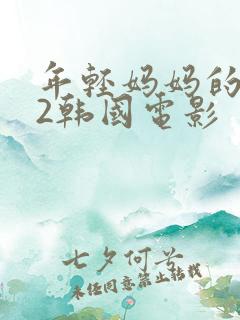 年轻妈妈的
2韩国电影
七夕何兮
未经同意禁止转载